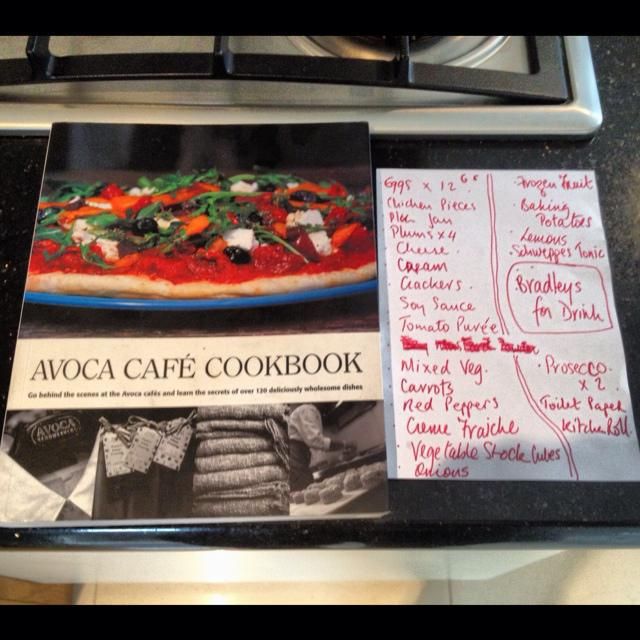 AVOCA CAFÉ COOKBOOK
Go behind the scenes at the Avoca cafés and learn the secrets of over 120 deliciously wholesome dishes
AVOCA
Eggs x 12
Chicken Pieces
Plum Jam
Plums x 4
Cheese
Cream
Crackers
Soy Sauce
Tomato Purée
Mixed Veg.
Carrots
Red Peppers
Creme Fraiche
Vegetable Stock Cubes
Onions
Frozen Fruit
Baking
Potatoes
Lemons
Schweppes Tonic
Bradleys
for Drink
Prosecco
x 2
Toilet Paper
Kitchen Roll